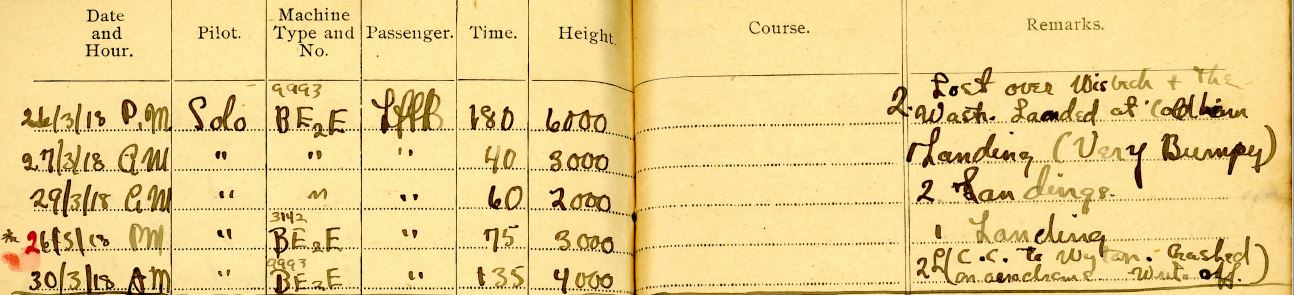 Date and Hour. Pilot. Machine Type and No. Passenger. Time. Height. Course. Remarks.
9993
2. Lost over Wisbech + The
26/3/18 P.M Solo BE2E 180 6000 Wash. Landed at
27/3/18 A M " " " 40 3000 1 Landing (Very Bumpy)
29/3/18 A M " " " 60 2000 2 Landings.
3142
* 26/3/18 PM " BE2E " 75 3000 1 Landing
9993
30/3/18 AM " BE2E " 135 4000 2 L (C.C. to Wyton. Crashed
on aerodrome Write off.)